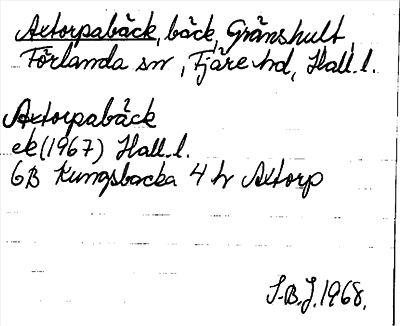 Axtorpabäck, bäck, Gränshult,
Förlanda sn, Fjäre hd, Hall. l.
Axtorpabäck
ek (1967) Hall. l.
6B Kungsbacka 4 h Axtorp
S.B.J. 1968.